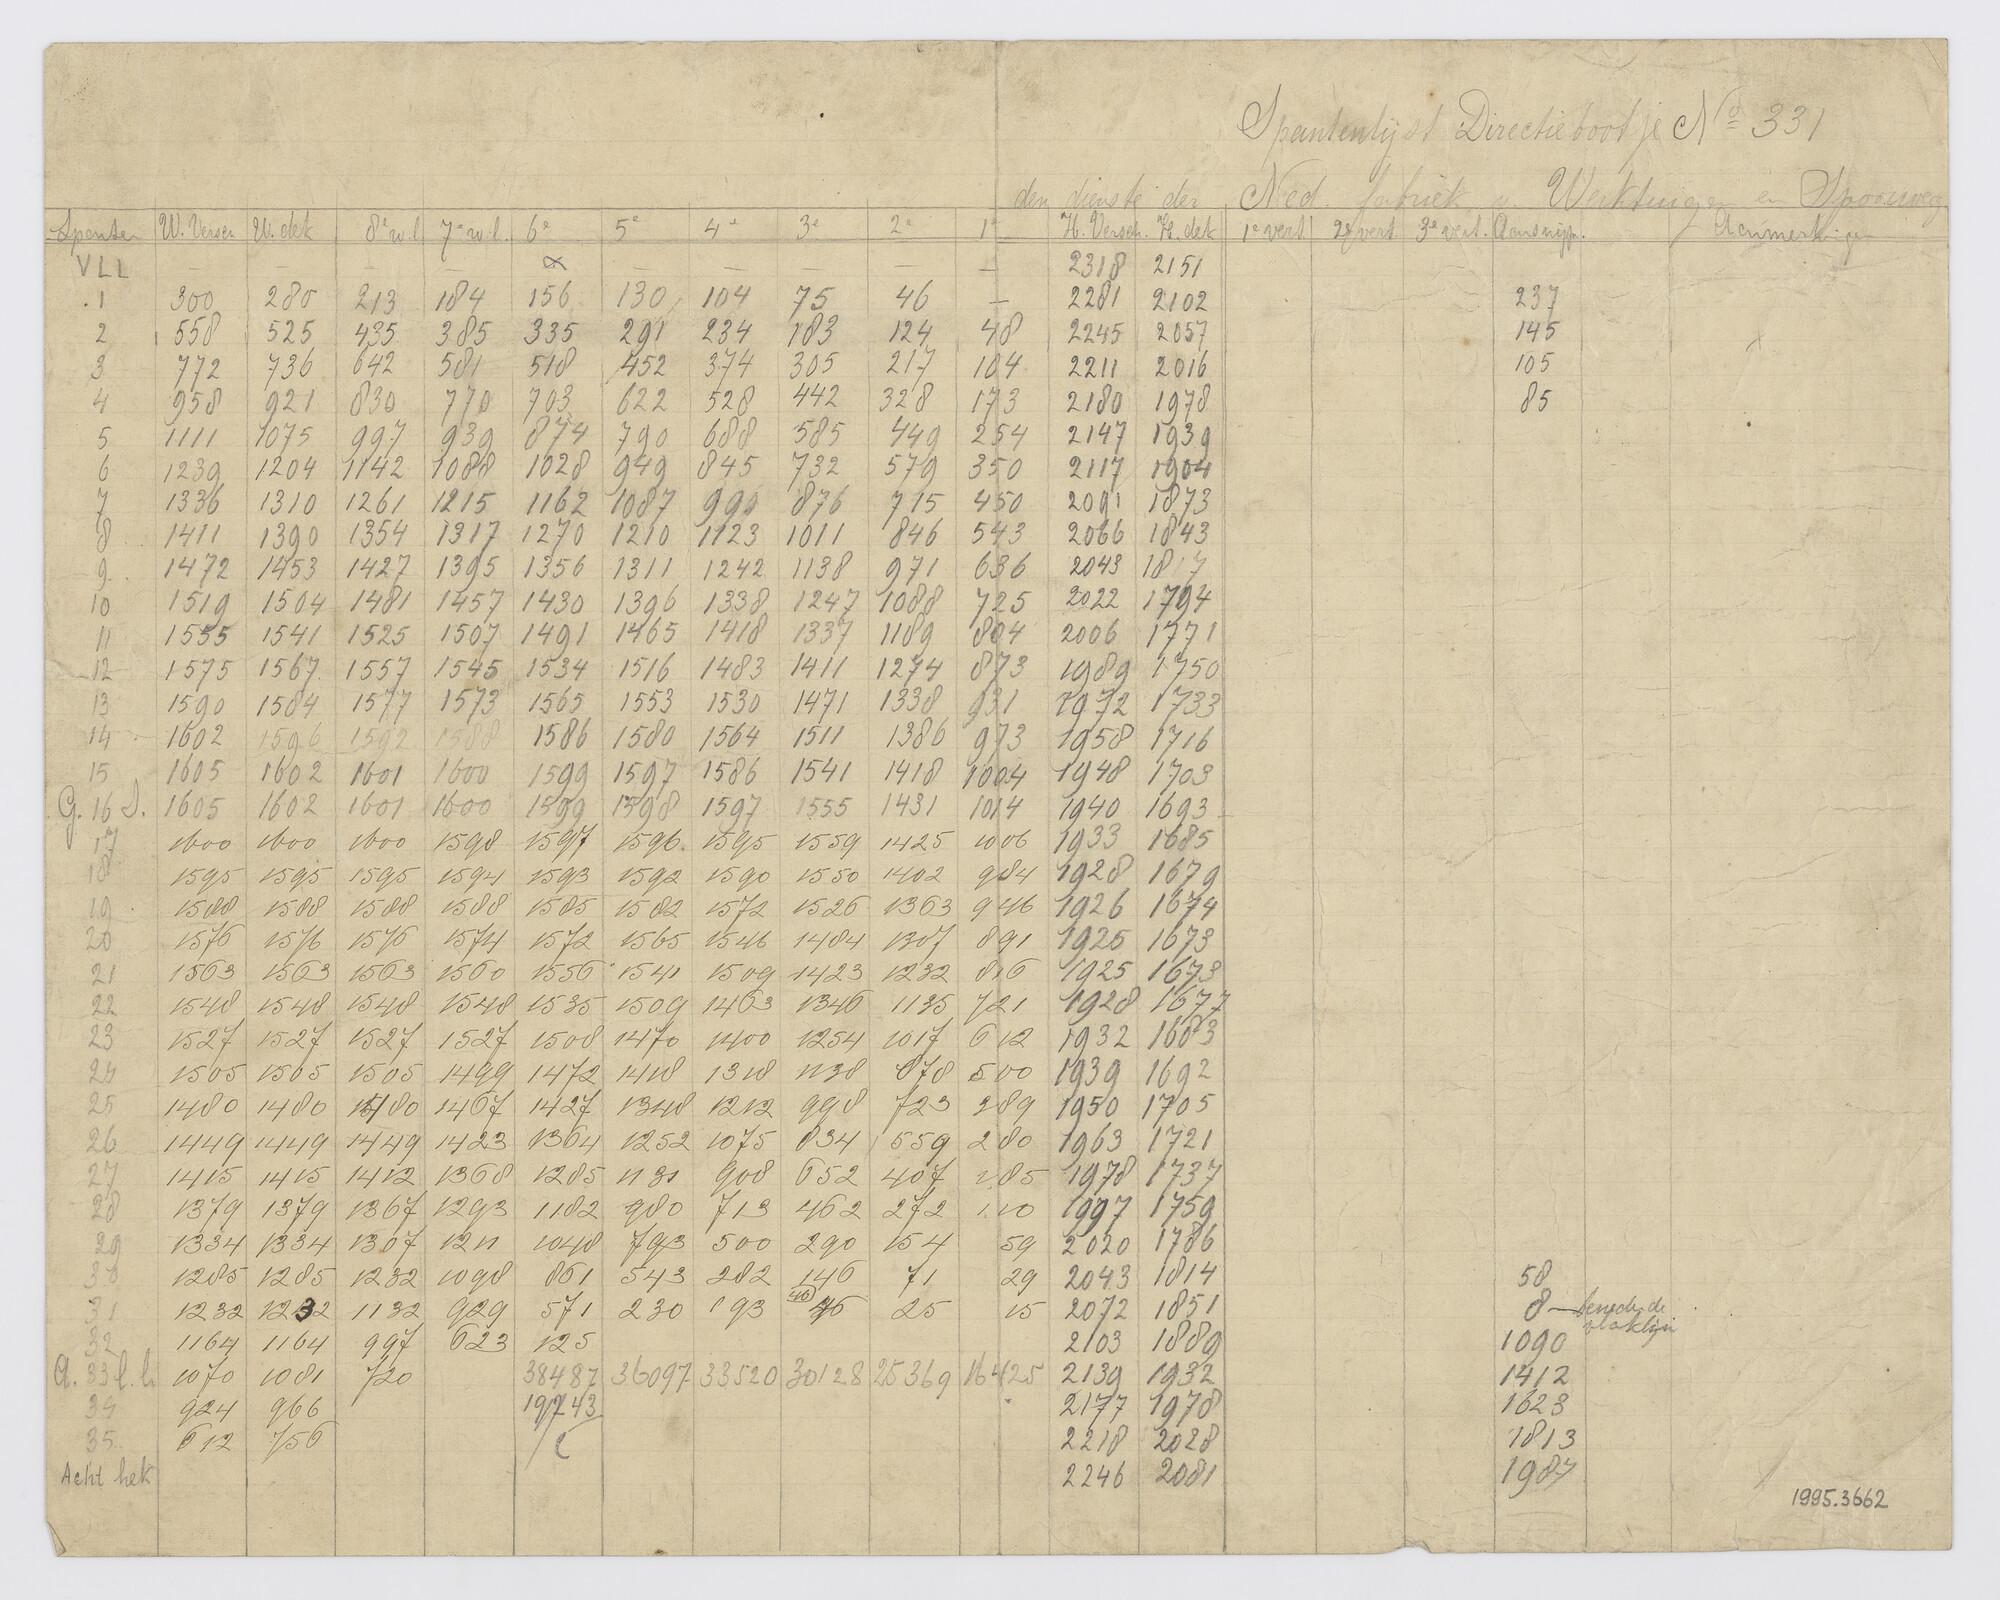 Spantenlijst Directiebootje No 331
den dienste der Ned. fabriek v. Werktuigen en Spoorweg
Spanten W. Versch W. dek 8e w.l 7e w.l. 6e 5e 4e 3e 2e 1e H. Versch. H. dek 1e vert 2e vert 3e vert. Aansnijp. Aanmerkingen
VLL — — — — — — — — — 2318 2151
1 300 280 213 184 156 130 104 75 46 — 2281 2102 237
2 558 525 435 385 335 291 234 183 124 48 2245 2057 145
3 772 736 642 581 518 452 374 305 217 104 2211 2016 105
4 958 921 830 770 703 622 528 442 328 173 2180 1978 85
5 1111 1075 997 939 874 790 688 585 449 254 2147 1939
6 1239 1204 1142 1088 1028 949 845 732 579 350 2117 1904
7 1336 1310 1261 1215 1162 1087 990 876 715 450 2091 1873
8 1411 1390 1354 1317 1270 1210 1123 1011 846 543 2066 1843
9 1472 1453 1427 1395 1356 1311 1242 1138 971 636 2043 1817
10 1519 1504 1481 1457 1430 1396 1338 1247 1088 725 2022 1794
11 1555 1541 1525 1507 1491 1465 1418 1337 1189 804 2006 1771
12 1575 1567 1557 1545 1534 1516 1483 1411 1274 873 1989 1750
13 1590 1584 1577 1573 1565 1553 1530 1471 1338 931 1972 1733
14 1602 1596 1592 1588 1586 1580 1564 1511 1386 973 1958 1716
15 1605 1602 1601 1600 1599 1597 1586 1541 1418 1004 1948 1703
G. 16 S. 1605 1602 1601 1600 1599 1598 1597 1555 1431 1014 1940 1693
17 1600 1600 1600 1598 1597 1596 1595 1559 1425 1006 1933 1685
18 1595 1595 1595 1594 1593 1592 1590 1550 1402 984 1928 1679
19 1588 1588 1588 1588 1585 1582 1572 1526 1363 946 1926 1674
20 1576 1576 1576 1574 1572 1565 1546 1484 1307 891 1925 1673
21 1563 1563 1563 1560 1556 1541 1509 1423 1232 816 1925 1673
22 1548 1548 1548 1548 1535 1509 1463 1346 1135 721 1928 1677
23 1527 1527 1527 1527 1508 1470 1400 1254 1017 612 1932 1683
24 1505 1505 1505 1499 1472 1418 1318 1138 878 500 1939 1692
25 1480 1480 1480 1467 1427 1348 1212 998 723 389 1950 1705
26 1449 1449 1449 1423 1364 1252 1075 834 559 280 1963 1721
27 1415 1415 1412 1368 1285 1131 908 652 407 185 1978 1737
28 1379 1379 1367 1293 1182 980 713 462 272 110 1997 1759
29 1334 1334 1307 1211 1048 793 500 290 154 59 2020 1786
30 1285 1285 1232 1098 861 543 282 146 71 29 2043 1814 58
31 1232 1232 1132 929 571 230 193 40 46 25 15 2072 1851 8 — beneede de
vlaklijn
32 1164 1164 997 623 125 2103 1889 1090
A. 33 l.l. 1070 1081 720 38487 36097 33520 30128 25369 16425 2139 1932 1412
34 924 966 19243 2177 1978 1623
35 612 756 2218 2028 1813
Acht hek 2246 2081 1987
1995.3662